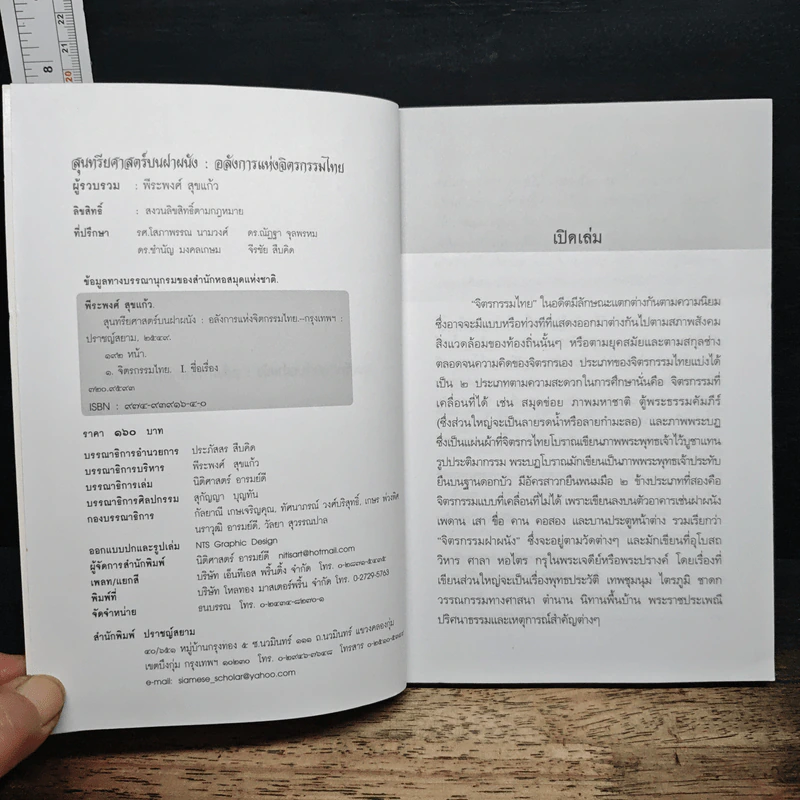 8
22
21
20
สุนทรียศาสตร์บนฝาผนัง : อลังการแห่งจิตรกรรมไทย
ผู้รวบรวม : พีระพงศ์ สุขแก้ว
ลิขสิทธิ์ : สงวนลิขสิทธิ์ตามกฎหมาย
ที่ปรึกษา รศ.โสภาพรรณ นามวงศ์ ดร.ณัฏฐา จุลพรหม
ดร.ชำนัญ มงคลเกษม จีรชัย สืบคิด
ข้อมูลทางบรรณานุกรมของสำนักหอสมุดแห่งชาติ.
พีระพงศ์ สุขแก้ว.
สุนทรียศาสตร์บนฝาผนัง : อลังการแห่งจิตกรรมไทย.--กรุงเทพฯ :
ปราชญ์สยาม, ๒๕๔๙.
๑๙๒ หน้า.
๑. จิตรกรรมไทย. I. ชื่อเรื่อง
๗๒๐.๙๕๙๓
ISBN : ๙๗๔-๙๓๙๑๖-๔-๐
ราคา ๑๖๐ บาท
บรรณาธิการอำนวยการ ประภัสสร สืบคิด
บรรณาธิการบริหาร พีระพงศ์ สุขแก้ว
บรรณาธิการเล่ม นิติศาสตร์ อารมย์ดี
บรรณาธิการศิลปกรรม สุกัญญา บุญทัน
กองบรรณาธิการ กัลยาณี เกษเจริญคุณ, ทัศนาภรณ์ วงศ์บริสุทธิ์, เกษร
นราวุฒิ อารมย์ดี, วัลยา สุวรรณปาล
ออกแบบปกและรูปเล่ม NTS Graphic Design
ผู้จัดการสำนักพิมพ์ นิติศาสตร์ อารมย์ดี nitisart@hotmail.com
เพลท/แยกสี บริษัท เอ็นทีเอส พริ้นติ้ง จำกัด โทร.
พิมพ์ที่ บริษัท โหลทอง มาสเตอร์พริ้น จำกัด โทร. 0-2729-5763
จัดจำหน่าย ธนบรรณ โทร. ๐-๒๔๓๔-๘๒๗๐-๑
สำนักพิมพ์ ปราชญ์สยาม
๔๐/๖๕๑ หมู่บ้านกรุงทอง ๕ ซ.นวมินทร์ ๑๑๑ ถ.นวมินทร์ แขวงคลองกุ่ม
เขตบึงกุ่ม กรุงเทพฯ ๑๐๒๓๐ โทร. ๐-๒๙๔๖-๓๖๔๘ โทรสาร
e-mail: siamese_scholar@yahoo.com
เปิดเล่ม
"จิตรกรรมไทย" ในอดีตมีลักษณะแตกต่างกันตามความนิยม
ซึ่งอาจจะมีแบบหรือท่วงทีที่แสดงออกมาต่างกันไปตามสภาพสังคม
สิ่งแวดล้อมของท้องถิ่นนั้นๆ หรือตามยุคสมัยและตามสกุลช่าง
ตลอดจนความคิดของจิตรกรเอง ประเภทของจิตรกรรมไทยแบ่งได้
เป็น ๒ ประเภทตามความสะดวกในการศึกษานั่นคือ จิตรกรรมที่
เคลื่อนที่ได้ เช่น สมุดข่อย ภาพมหาชาติ ตู้พระธรรมคัมภีร์
(ซึ่งส่วนใหญ่จะเป็นลายรดน้ำหรือลายกำมะลอ) และภาพพระบฏ
ซึ่งเป็นแผ่นผ้าที่จิตรกรไทยโบราณเขียนภาพพระพุทธเจ้าไว้บูชาแทน
รูปประติมากรรม พระบฏโบราณมักเขียนเป็นภาพพระพุทธเจ้าประทับ
ยืนบนฐานดอกบัว มีอัครสาวกยืนพนมมือ ๒ ข้างประเภทที่สองคือ
จิตรกรรมแบบที่เคลื่อนที่ไม่ได้ เพราะเขียนลงบนตัวอาคารเช่นฝาผนัง
เพดาน เสา ขื่อ คาน คอสอง และบานประตูหน้าต่าง รวมเรียกว่า
"จิตรกรรมฝาผนัง" ซึ่งจะอยู่ตามวัดต่างๆ และมักเขียนที่อุโบสถ
วิหาร ศาลา หอไตร กรุในพระเจดีย์หรือพระปรางค์ โดยเรื่องที่
เขียนส่วนใหญ่จะเป็นเรื่องพุทธประวัติ เทพชุมนุม ไตรภูมิ ชาดก
วรรณกรรมทางศาสนา ตำนาน นิทานพื้นบ้าน พระราชประเพณี
ปริศนาธรรมและเหตุการณ์สำคัญต่างๆ